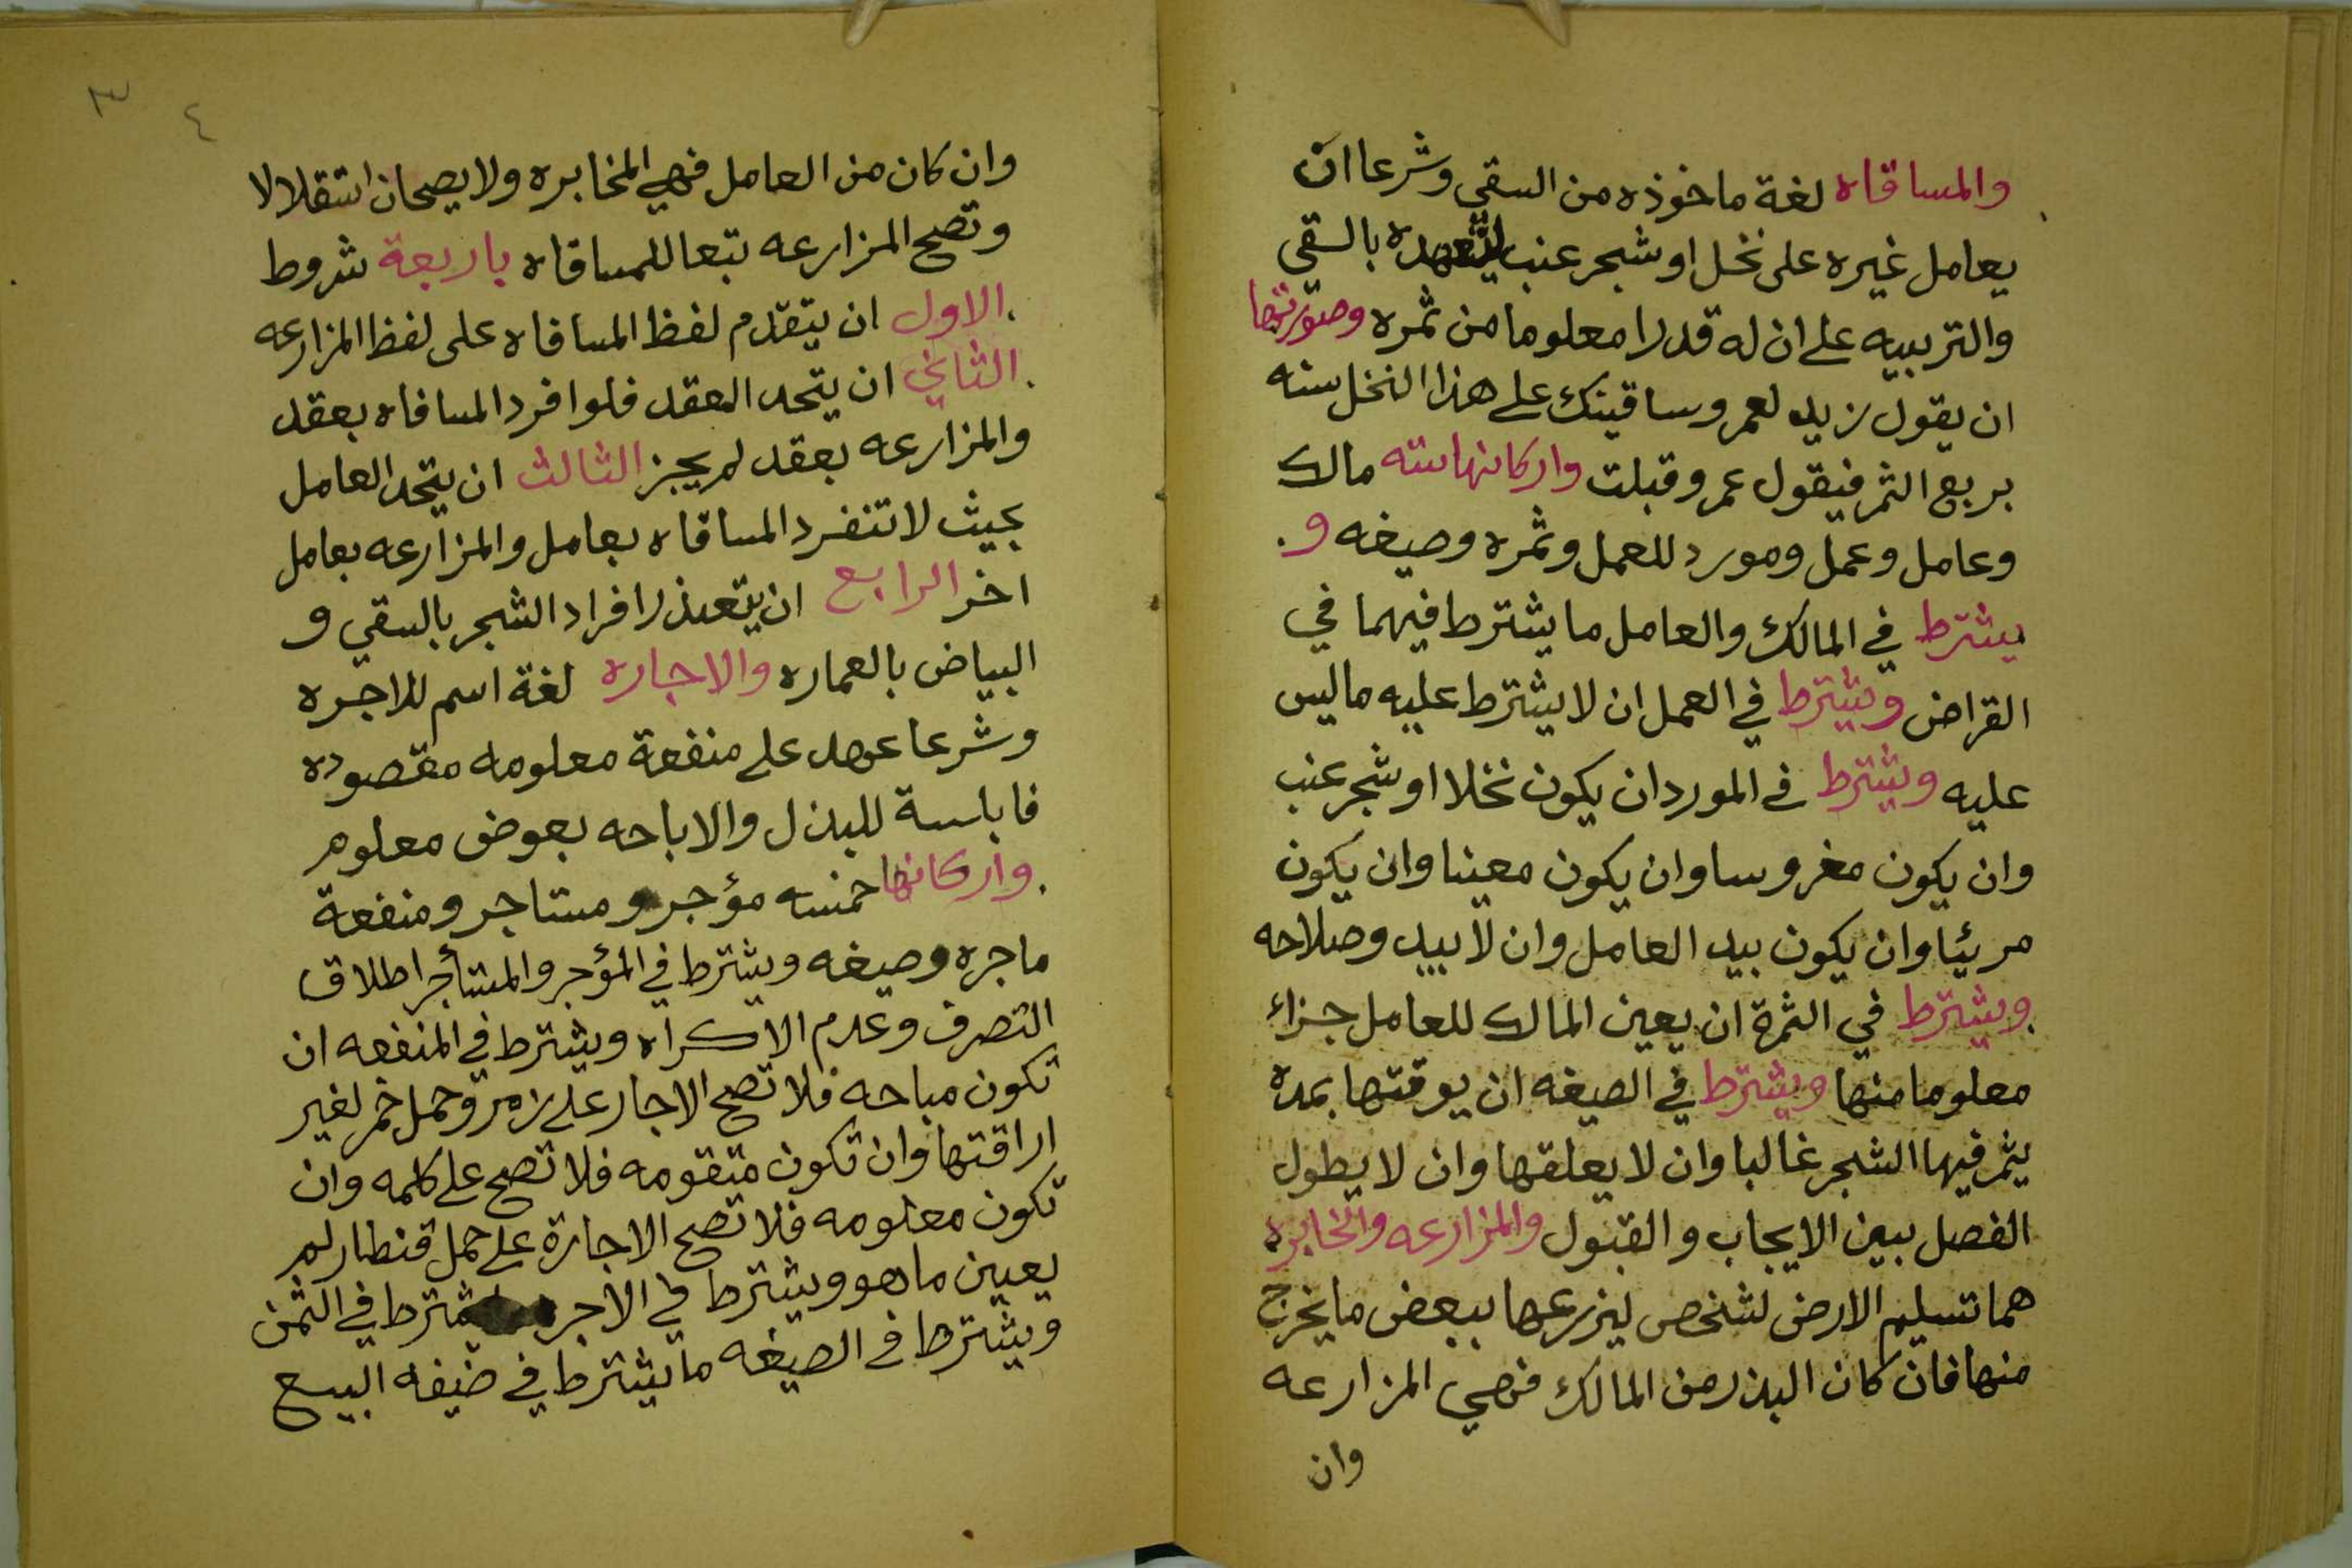 والمساقاه لغة ماخوذه من السقي وشرعا ان
يعامل غيره على نخل او شجر عنب ليتعهده بالسقي
والتربيه على ان له قدرا معلوما من ثمره وصورتها
ان يقول زيد لعمر وساقيتك على هذا النخل سنه
بربع الثمر فيقول عمرو قبلت واركانها سته مالك
وعامل وعمل ومورد للعمل وثمره وصيغه و
يشترط في المالك والعامل ما يشترط فيهما في
القراض ويشترط في العمل ان لا يشترط عليه ما ليس
عليه ويشترط في المورد ان يكون نخلا او شجر عنب
وان يكون مغروسا وان يكون معينا وان يكون
مرئيا وان يكون بيد العامل وان لا يبد وصلاحه
ويشترط في الثمرة ان يعين المالك للعامل جزاء
معلوما منها ويشترط في الصيغه ان يوقتها بمده
يثمر فيها الشجر غالبا وان لا يعلقها وان لا يطول
الفصل بين الايجاب والقبول والمزارعه والخابره
هما تسليم الارض لشخص ليزرعها ببعض ما يخرج
منها فان كان البذر من المالك فهي المزارعه
وان
٣ ٤
وان كان من العامل فهي المخابره ولا يصحان استقلالا
وتصح المزارعه تبعا للمساقاه باربعة شروط
الاول ان يتقدم لفظ المساقاه على لفظ المزارعه
الثاني ان يتحد العقد فلو افرد المساقاه بعقد
والمزارعه بعقد لم يجز الثالث ان يتحد العامل
بحيث لا تنفرد المساقاه بعامل والمزارعه بعامل
اخر الرابع ان يتعذر افراد الشجر بالسقي و
البياض بالعماره والاجاره لغة اسم للاجره
وشرعا عهد على منفعة معلومه مقصوده
فابلسة للبذل والاباحه بعوض معلوم
واركانها خمسه مؤجر ومستاجر ومنفعة
ماجره وصيغه ويشترط في المؤجر والمستأجر اطلاق
التصرف وعدم الاكراه ويشترط في المنفعه ان
تكون مباحه فلا تصح الاجار على زمر وحمل خمر لغير
اراقتها وان تكون متقومه فلا تصح على كلمه وان
تكون معلومه فلا تصح الاجارة على حمل قنطار لم
يعين ما هو ويشترط في الاجره يشترط في الثمن
ويشترط في الصيغه ما يشترط في ضيغه البيع